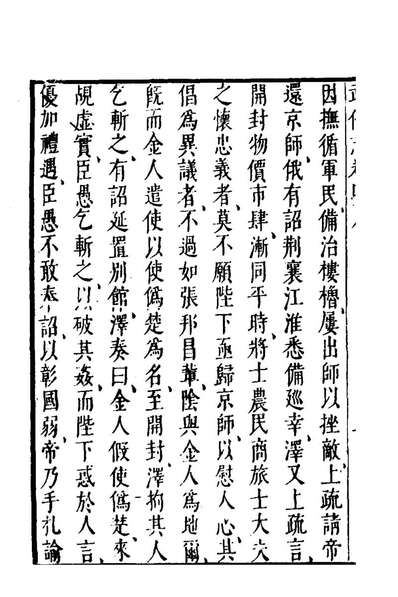 因撫循軍民備治樓櫓屢出師以挫敵上疏請帝
還京師俄有詔荆襄江淮悉備廵幸澤又上疏言
開封物價市肆漸同平時將士農民商旅士大夫
之懷忠義者莫不願陛下亟歸京師以慰人心其
倡為異議者不過如張邦昌輩陰與金人為地爾
旣而金人遣使以使僞楚為名至開封澤拘其人
乞斬之有詔延置别館澤奏曰金人假使僞楚來
覘虚實臣愚乞斬之以破其姦而陛下惑於人言
優加禮遇臣愚不敢奉詔以彰國弱帝乃手札諭